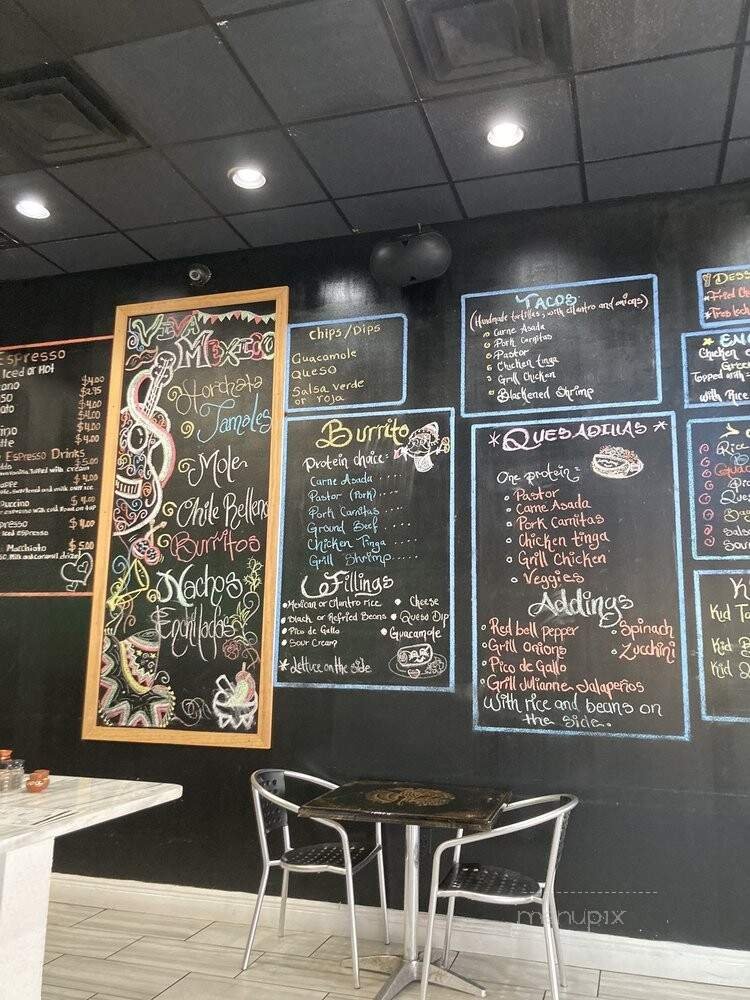 Espresso
Iced or Hot
$4.00
$3.75
$4.00
$4.00
$4.00
$4.00
Espresso Drinks
$5.00
$4.00
$4.00
$4.00
Macchiato $5.00
VIVA
MEXICO
Horchata
Tamales
Mole
Chile Rellen
Burritos
Nachos
Enchiladas
Chips/Dips
Guacamole
Queso
Salsa verde
or roja
Burrito
Protein choice:
Carne Asada ....
Pastor (Pork) ....
Pork Carnitas ....
Ground Beef ....
Chicken Tinga ....
Grill Shrimp .....
6 Fillings
Mexican or Cilantro rice
Black or Refried Beans
Pico de Gallo
Sour Cream
Cheese
Queso Dip
Guacamole
* Lettuce on the side
TACOS
(Handmade tortillas, with cilantro and onions)
Carne Asada
Pork Carnitas
Pastor
Chicken tinga
Grill Chicken
Blackened Shrimp
*QUESADILLAS*
One protein:
Pastor
Carne Asada
Pork Carnitas
Chicken tinga
Grill Chicken
Veggies
Addings
Red bell pepper
Grill Onions
Pico de Gallo
Grill Julianne Jalapeños
Spinach
Zucchini
With rice and beans on
the side.
DESS
Fried Ch
Tres lech
EN
Chicken
Gree
Topped with
with Rice
Rice
Gua
Que
Salsa
Sour
K
Kid Ta
Kid B
Kid S
menupix